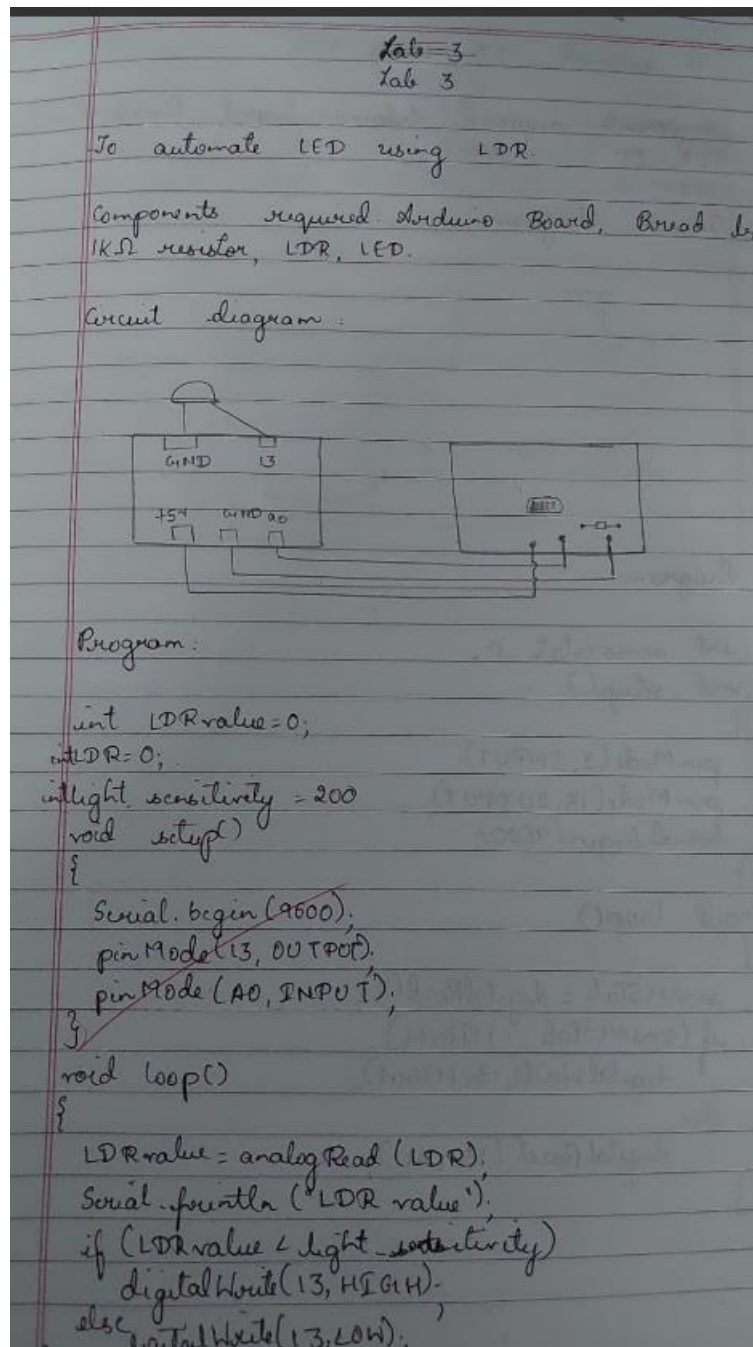 Lab - 3
Lab 3
To automate LED using LDR.
Components required. Arduino Board, Bread
1KΩ resistor, LDR, LED.
Circuit diagram :
GND 13
+5V GND a0
Program:
int LDRvalue=0;
intLDR=0;
intlight sensitivity = 200
void setup()
{
Serial.begin(9600);
pinMode(13, OUTPUT);
pinMode (A0, INPUT);
}
void loop()
{
LDRvalue = analogRead (LDR);
Serial.println ("LDR value");
if (LDRvalue < light_sensitivity)
digitalWrite(13, HIGH);
else
digitalWrite(13,LOW);